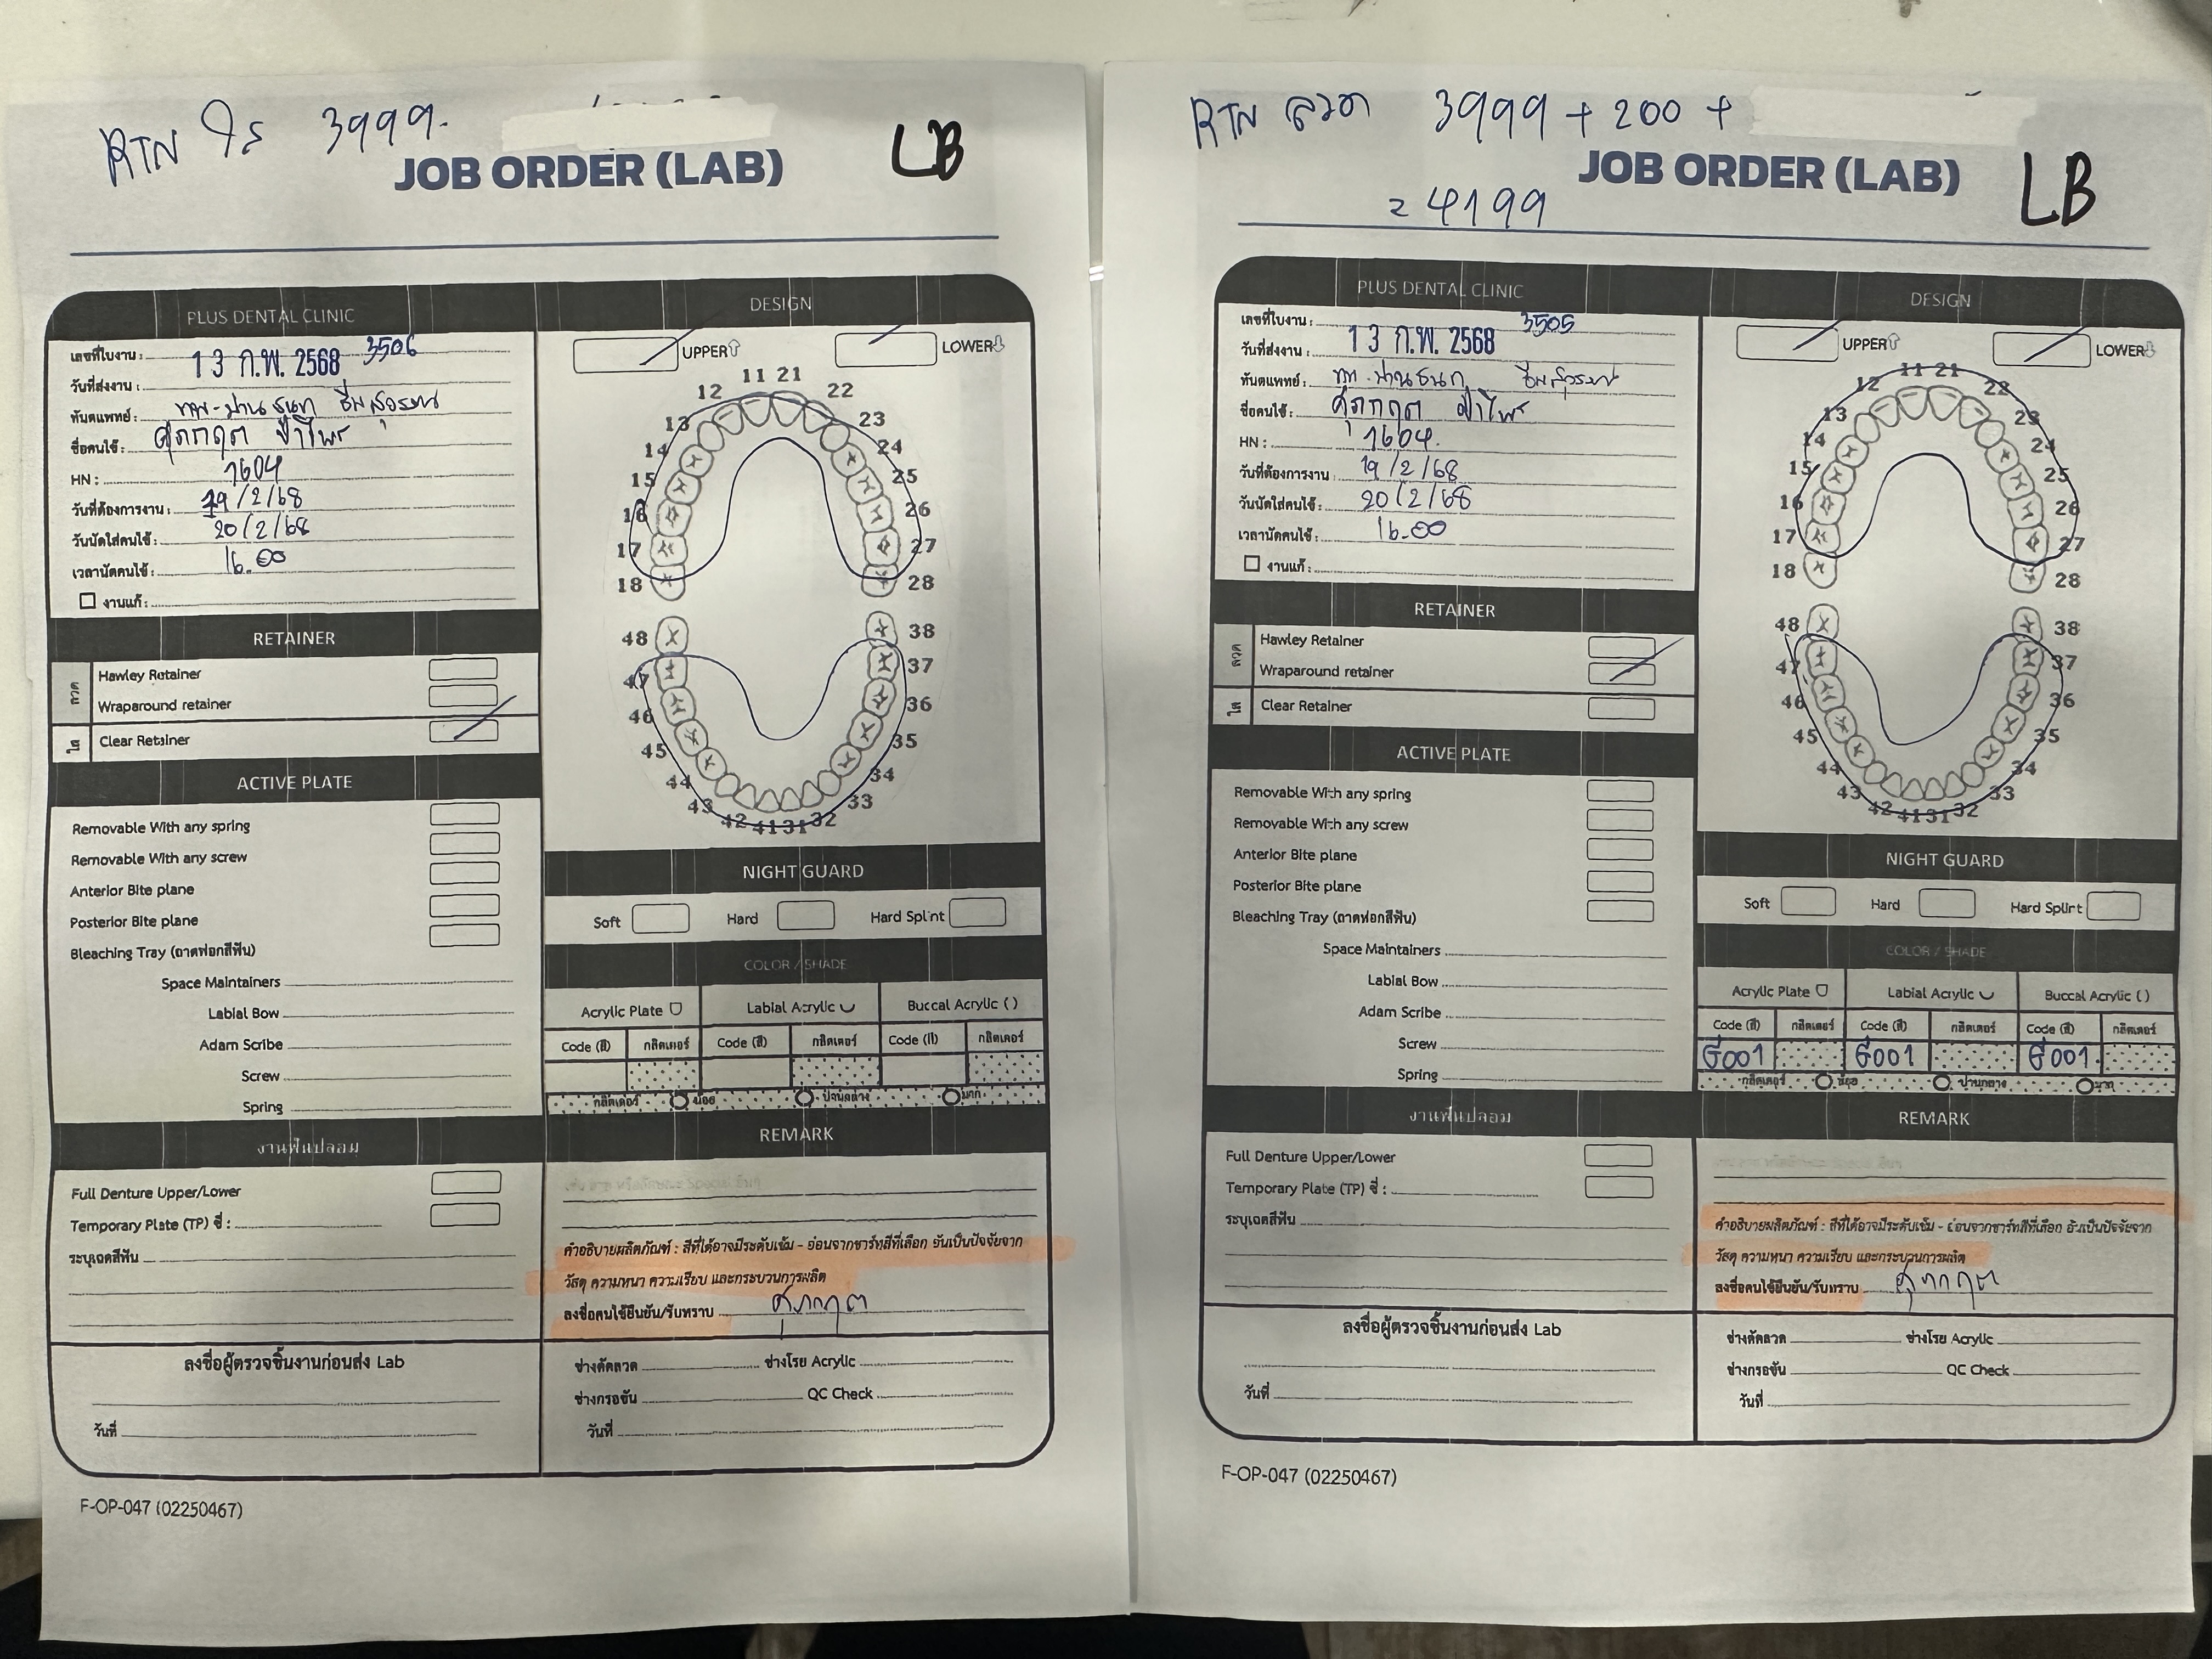 RTN ใส 3999.
JOB ORDER (LAB)
LB
PLUS DENTAL CLINIC
เลขที่ใบงาน : 3506
วันที่ส่งงาน : 13 ก.พ. 2568
ทันตแพทย์ :
ชื่อคนไข้ : ศุภกฤต
HN : 1604
วันที่ต้องการงาน : 19/2/68
วันนัดใส่คนไข้ : 20/2/68
เวลานัดคนไข้ : 16.00
งานแก้ :
RETAINER
ลวด
Hawley Retainer
Wraparound retainer
ใส
Clear Retainer
ACTIVE PLATE
Removable With any spring
Removable With any screw
Anterior Bite plane
Posterior Bite plane
Bleaching Tray (ถาดฟอกสีฟัน)
Space Maintainers
Labial Bow
Adam Scribe
Screw
Spring
งานฟันปลอม
Full Denture Upper/Lower
Temporary Plate (TP) ซี่ :
ระบุเฉดสีฟัน
ลงชื่อผู้ตรวจชิ้นงานก่อนส่ง Lab
วันที่
DESIGN
UPPER LOWER
18 17 16 15 14 13 12 11 21 22 23 24 25 26 27 28
48 47 46 45 44 43 42 41 31 32 33 34 35 36 37 38
NIGHT GUARD
Soft Hard Hard Splint
COLOR / SHADE
Acrylic Plate Labial Acrylic Buccal Acrylic ( )
Code (สี) กลิตเตอร์ Code (สี) กลิตเตอร์ Code (สี) กลิตเตอร์
กลิตเตอร์ น้อย ปานกลาง มาก
REMARK
คำอธิบายผลิตภัณฑ์ : สีที่ได้อาจมีระดับเข้ม - อ่อนจากชาร์ทสีที่เลือก อันเป็นปัจจัยจาก
วัสดุ ความหนา ความเรียบ และกระบวนการผลิต
ลงชื่อคนไข้ยืนยัน/รับทราบ ศุภกฤต
ช่างดัดลวด ช่างโรย Acrylic
ช่างกรอขัน QC Check
วันที่
F-OP-047 (02250467)
RTN ลวด 3999 + 200 +
= 4199
JOB ORDER (LAB)
LB
PLUS DENTAL CLINIC
เลขที่ใบงาน : 3505
วันที่ส่งงาน : 13 ก.พ. 2568
ทันตแพทย์ :
ชื่อคนไข้ : ศุภกฤต
HN : 1604
วันที่ต้องการงาน : 19/2/68
วันนัดใส่คนไข้ : 20/2/68
เวลานัดคนไข้ : 16.00
งานแก้ :
RETAINER
ลวด
Hawley Retainer
Wraparound retainer
ใส
Clear Retainer
ACTIVE PLATE
Removable With any spring
Removable With any screw
Anterior Bite plane
Posterior Bite plane
Bleaching Tray (ถาดฟอกสีฟัน)
Space Maintainers
Labial Bow
Adam Scribe
Screw
Spring
งานฟันปลอม
Full Denture Upper/Lower
Temporary Plate (TP) ซี่ :
ระบุเฉดสีฟัน
ลงชื่อผู้ตรวจชิ้นงานก่อนส่ง Lab
วันที่
DESIGN
UPPER LOWER
18 17 16 15 14 13 12 11 21 22 23 24 25 26 27 28
48 47 46 45 44 43 42 41 31 32 33 34 35 36 37 38
NIGHT GUARD
Soft Hard Hard Splint
COLOR / SHADE
Acrylic Plate Labial Acrylic Buccal Acrylic ( )
Code (สี) กลิตเตอร์ Code (สี) กลิตเตอร์ Code (สี) กลิตเตอร์
G001 G001 G001
กลิตเตอร์ น้อย ปานกลาง มาก
REMARK
คำอธิบายผลิตภัณฑ์ : สีที่ได้อาจมีระดับเข้ม - อ่อนจากชาร์ทสีที่เลือก อันเป็นปัจจัยจาก
วัสดุ ความหนา ความเรียบ และกระบวนการผลิต
ลงชื่อคนไข้ยืนยัน/รับทราบ ศุภกฤต
ช่างดัดลวด ช่างโรย Acrylic
ช่างกรอขัน QC Check
วันที่
F-OP-047 (02250467)